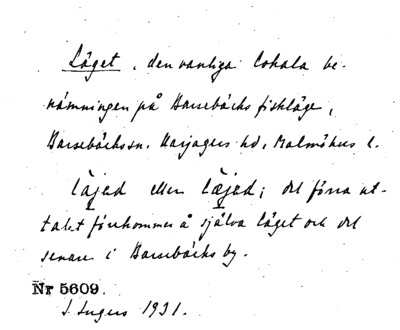 Läget, den vanliga lokala be-
nämningen på Barsebäcks fiskläge,
Barsebäckssn. Harjagers hd, Malmöhus l.
läjed eller læjed; det förra ut-
talet förekommer å själva läget och det
senare i Barsebäcks by.
Nr 5609.
I. Ingers 1931.